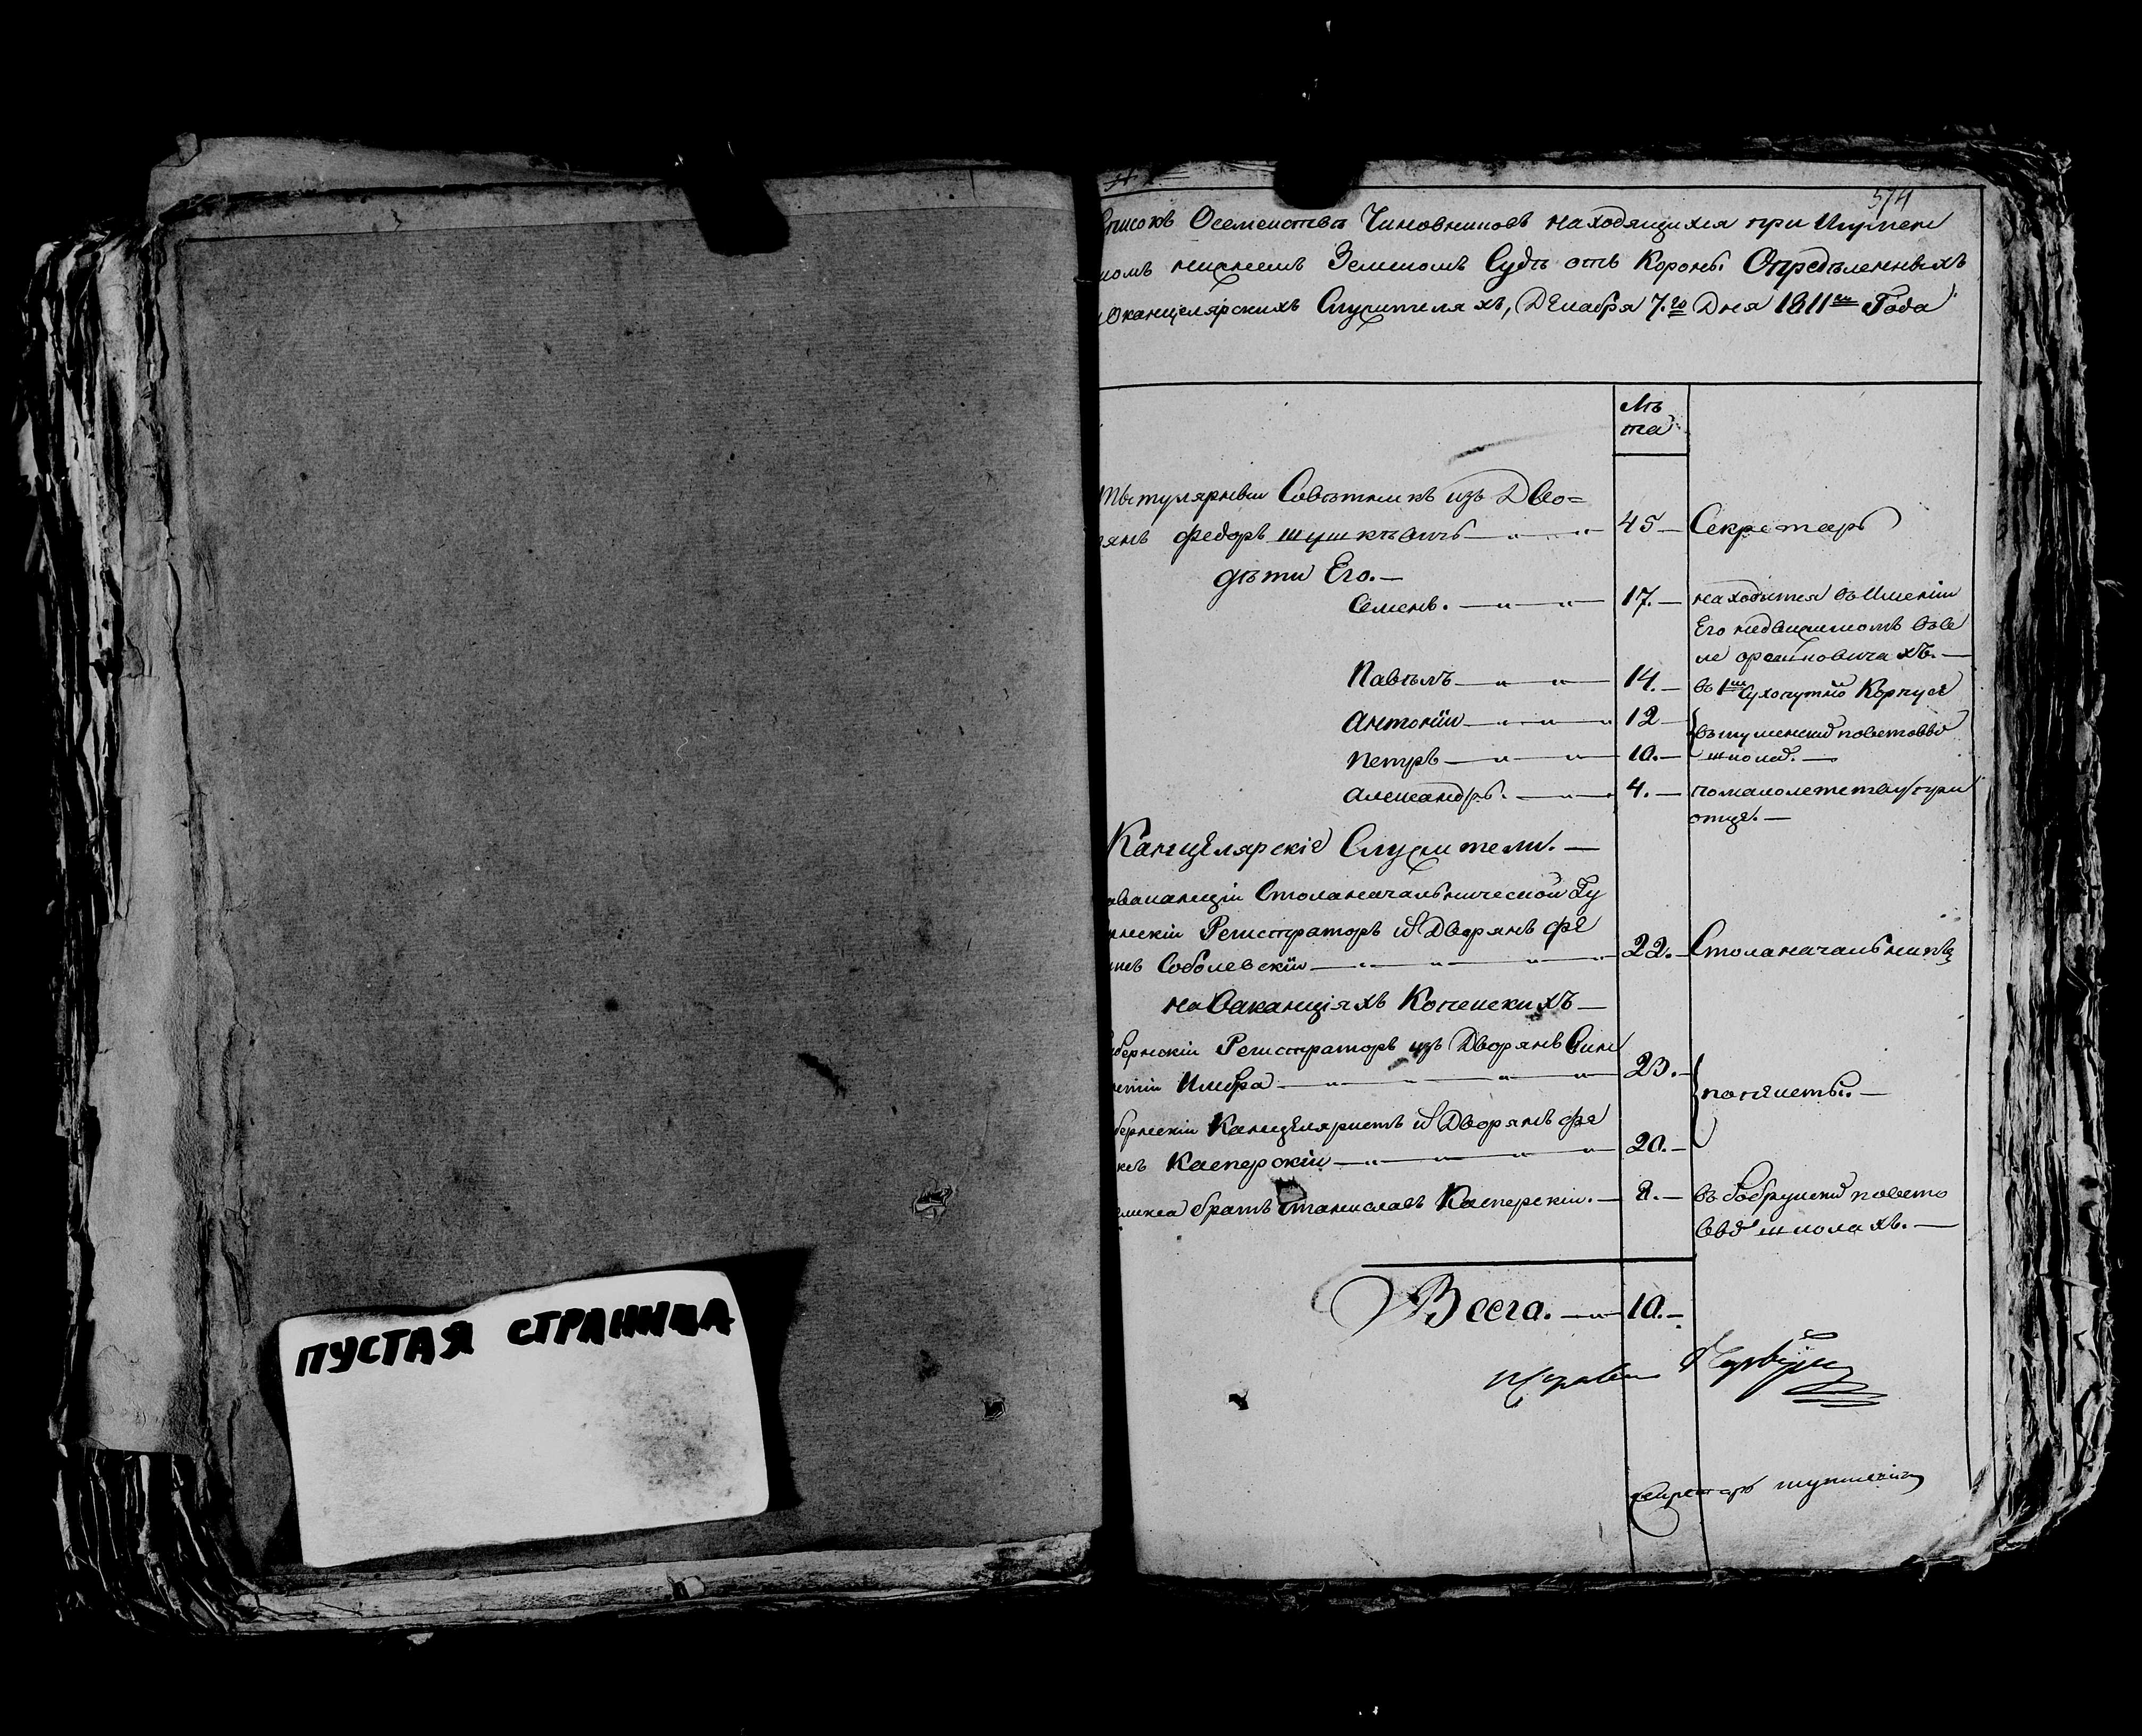 ПУСТАЯ СТРАНИЦА
574
Списокъ Осемействѣ Чиновниковъ находящихся при Игумен
номъ нижнемъ Земскомъ Судѣ отъ Короны Определенныхъ
Оканцелярскихъ Служителяхъ, Декабря 7го Дня 1811го Года
Лѣ
та
Тытулярный Совѣтникъ изъ Дво=
рянъ Федоръ Шушкѣвичъ 45 Секретарь
дѣти Его.
Семенъ. 17. находится въ Имѣнии
Его недвижимомъ въ се
ле
Павѣлъ 14. въ 1мъ Сухопутно Корпусе
Антоний 12
въ Игуменско поветово
Петръ 10. школе.
Александръ. 4. помалолететву при
отце.
Канцелярские Служители.
Столаначальнической Гу
Регистраторъ из Дворянъ Фе
Соболевский 22. Столаначальникъ
на Ваканцияхъ Копеискихъ
бернский Регистраторъ изъ Дворянъ Вин
23.
попѣисты.
бернский Канцеляристъ из Дворянъ Фе
Касперский 20.
ликса братъ Станиславъ Касперский. 8. въ бобруиско повето
вво школахъ.
Всего. 10.
Секретарь Шушкевичъ